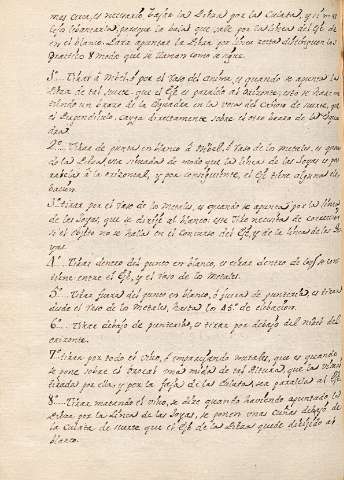 mas cerca, es necesario bajar la Pieza por la Culata, y si más
lejos levantarla, porque la bala que sale por la linea del Eje dé
en el blanco. Para apuntar la Pieza por linea recta distinguen los
Practicos 8 modos que se llaman como sigue.
1º... Tirar á Nivel ó por el Raso del anima, es quando se apunta la
Pieza de tal suerte, que el Eje es paralelo al orizonte, esto se hace me-
tiendo un brazo de la Esquadra en la boca del Cañon de suerte, que
el Perpendiculo, cayga directamente sobre el otro brazo de la Esqua-
dra.
2º... Tirar de punta en blanco ó Nibel, ó Raso de los metales, es quan-
do la Pieza, está situada de modo que la linea de las Joyas es pa-
ralela á la orizontal, y por consiguiente, el Eje tiene alguna ele-
bacion.
3º tirar por el Raso de los Metales, es quando se apunta por la linea
de las Joyas, que se dirije al blanco: este tiro necesita de correccion
si el objeto no se halla en el concurso del Eje, y de la linea de las Jo-
yas.
4º... Tirar dentro del punto en blanco, es tirar dentro de lo que se con-
tiene entre el Eje, y el Raso de los Metales.
5º... Tirar fuera del punto en blanco, ó fuera de punteria, es tirar
desde el Raso de los Metales, hasta los 45º de elebacion.
6º... Tirar debajo de punteria, es tirar por debajo del nibel del
orizonte.
7º tirar por todo el vibo, ó emparejando metales, que es quando
se pone sobre el brocal una mira de tal altura, que la visual
tirada por ella, y por la faja de la Culata, sea paralela al Eje.
8º... Tirar matando el vibo, se dize quando haviendo apuntado la
Pieza por la Linea de las Joyas, se ponen unas Cuñas debajo de
la Culata de suerte que el Eje de la Pieza quede dirijido al
blanco.